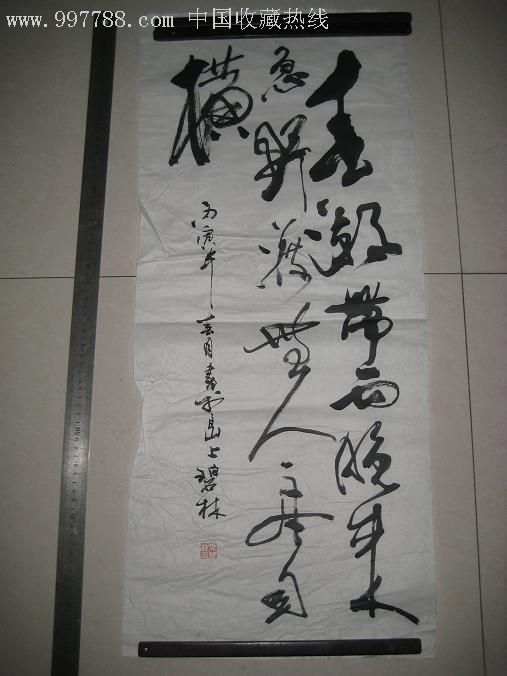 www.997788.com 中国收藏热线
春潮带雨晚来
急野渡无人舟自
横
丙寅年春月书于昆上碧林